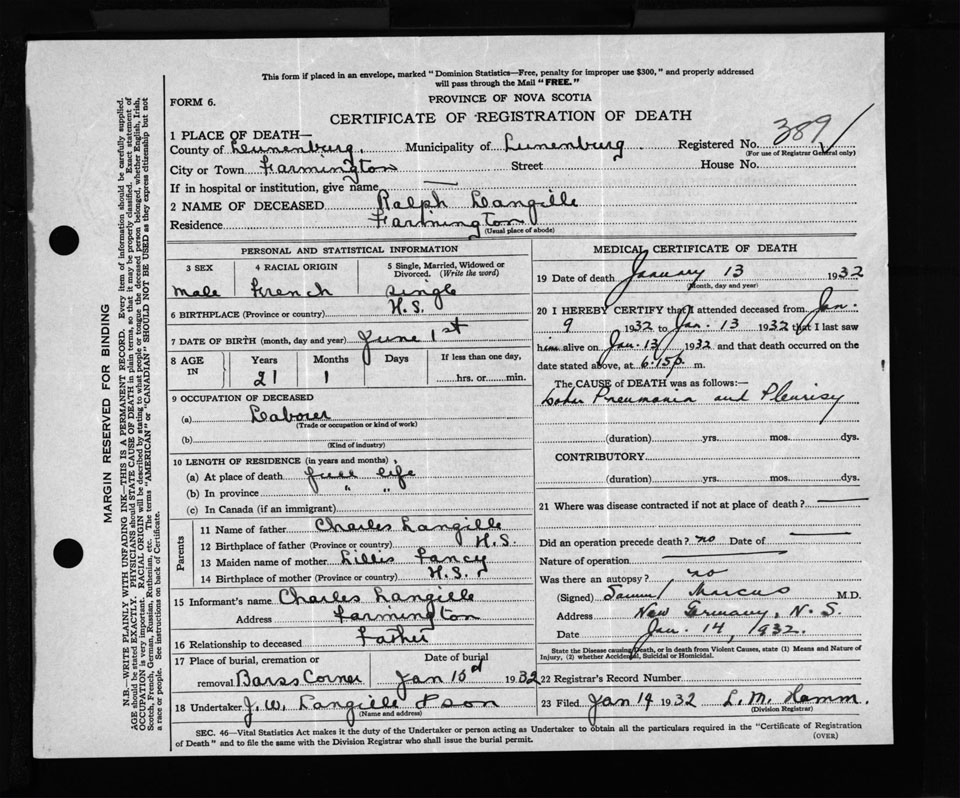 This form if placed in an envelope, marked "Dominion Statistics—Free, penalty for improper use $300," and properly addressed
will pass through the Mail "FREE."
FORM 6.
PROVINCE OF NOVA SCOTIA
CERTIFICATE OF REGISTRATION OF DEATH
1 PLACE OF DEATH—
County of Lunenburg. Municipality of Lunenburg Registered No. 389
(For use of Registrar General only)
City or Town Farmington Street House No.
If in hospital or institution, give name —
2 NAME OF DECEASED Ralph Langille
Residence Farmington
(Usual place of abode)
PERSONAL AND STATISTICAL INFORMATION
3 SEX 4 RACIAL ORIGIN 5 Single, Married, Widowed or Divorced. (Write the word)
male French single
6 BIRTHPLACE (Province or country) N.S.
7 DATE OF BIRTH (month, day and year) June 1st
8 AGE IN Years Months Days If less than one day,
21 1 hrs. or min.
9 OCCUPATION OF DECEASED
(a) Laborer
(Trade or occupation or kind of work)
(b)
(Kind of industry)
10 LENGTH OF RESIDENCE (in years and months)
(a) At place of death full life
(b) In province " "
(c) In Canada (if an immigrant)
Parents
11 Name of father Charles Langille
12 Birthplace of father (Province or country) N.S.
13 Maiden name of mother Lillis Fancy
14 Birthplace of mother (Province or country) N.S.
15 Informant's name Charles Langille
Address Farmington
16 Relationship to deceased Father
17 Place of burial, cremation or Date of burial
removal Barss Corner Jan 1932
18 Undertaker J. W. Langille & son
(Name and address)
MEDICAL CERTIFICATE OF DEATH
19 Date of death January 13 1932
(Month, day and year)
20 I HEREBY CERTIFY that I attended deceased from Jan.
9 1932 to Jan. 13 1932 that I last saw
him alive on Jan. 13 1932 and that death occurred on
date stated above, at 6.15 p. m.
The CAUSE of DEATH was as follows:—
Lobar Pneumonia and Pleurisy
(duration) yrs. mos. dys.
CONTRIBUTORY
(duration) yrs. mos. dys.
21 Where was disease contracted if not at place of death? —
Did an operation precede death? no Date of —
Nature of operation —
Was there an autopsy? no
(Signed) Marcus M.D.
Address New Germany, N.S.
Date Jan. 14, 1932.
State the Disease causing Death, or in death from Violent Causes, state (1) Means and Nature of
Injury, (2) whether Accidental, Suicidal or Homicidal.
22 Registrar's Record Number
23 Filed Jan 14 1932 L. M. Hamm.
(Division Registrar)
SEC. 46—Vital Statistics Act makes it the duty of the Undertaker or person acting as Undertaker to obtain all the particulars required in the "Certificate of Registration
of Death" and to file the same with the Division Registrar who shall issue the burial permit.
(OVER)
MARGIN RESERVED FOR BINDING
N.B.—WRITE PLAINLY WITH UNFADING INK—THIS IS A PERMANENT RECORD. Every item of information should be carefully supplied.
AGE should be stated EXACTLY. PHYSICIANS should STATE CAUSE OF DEATH in plain terms, so that it may be properly classified. Exact statement of
OCCUPATION is very important. RACIAL ORIGIN will be described by stating to what people or tongue the deceased person belonged, whether English, Irish,
Scotch, French, German, Russian, Ruthenian, etc. The terms "AMERICAN" or "CANADIAN" SHOULD NOT BE USED as they express citizenship but not
a race or people. See instructions on back of Certificate.